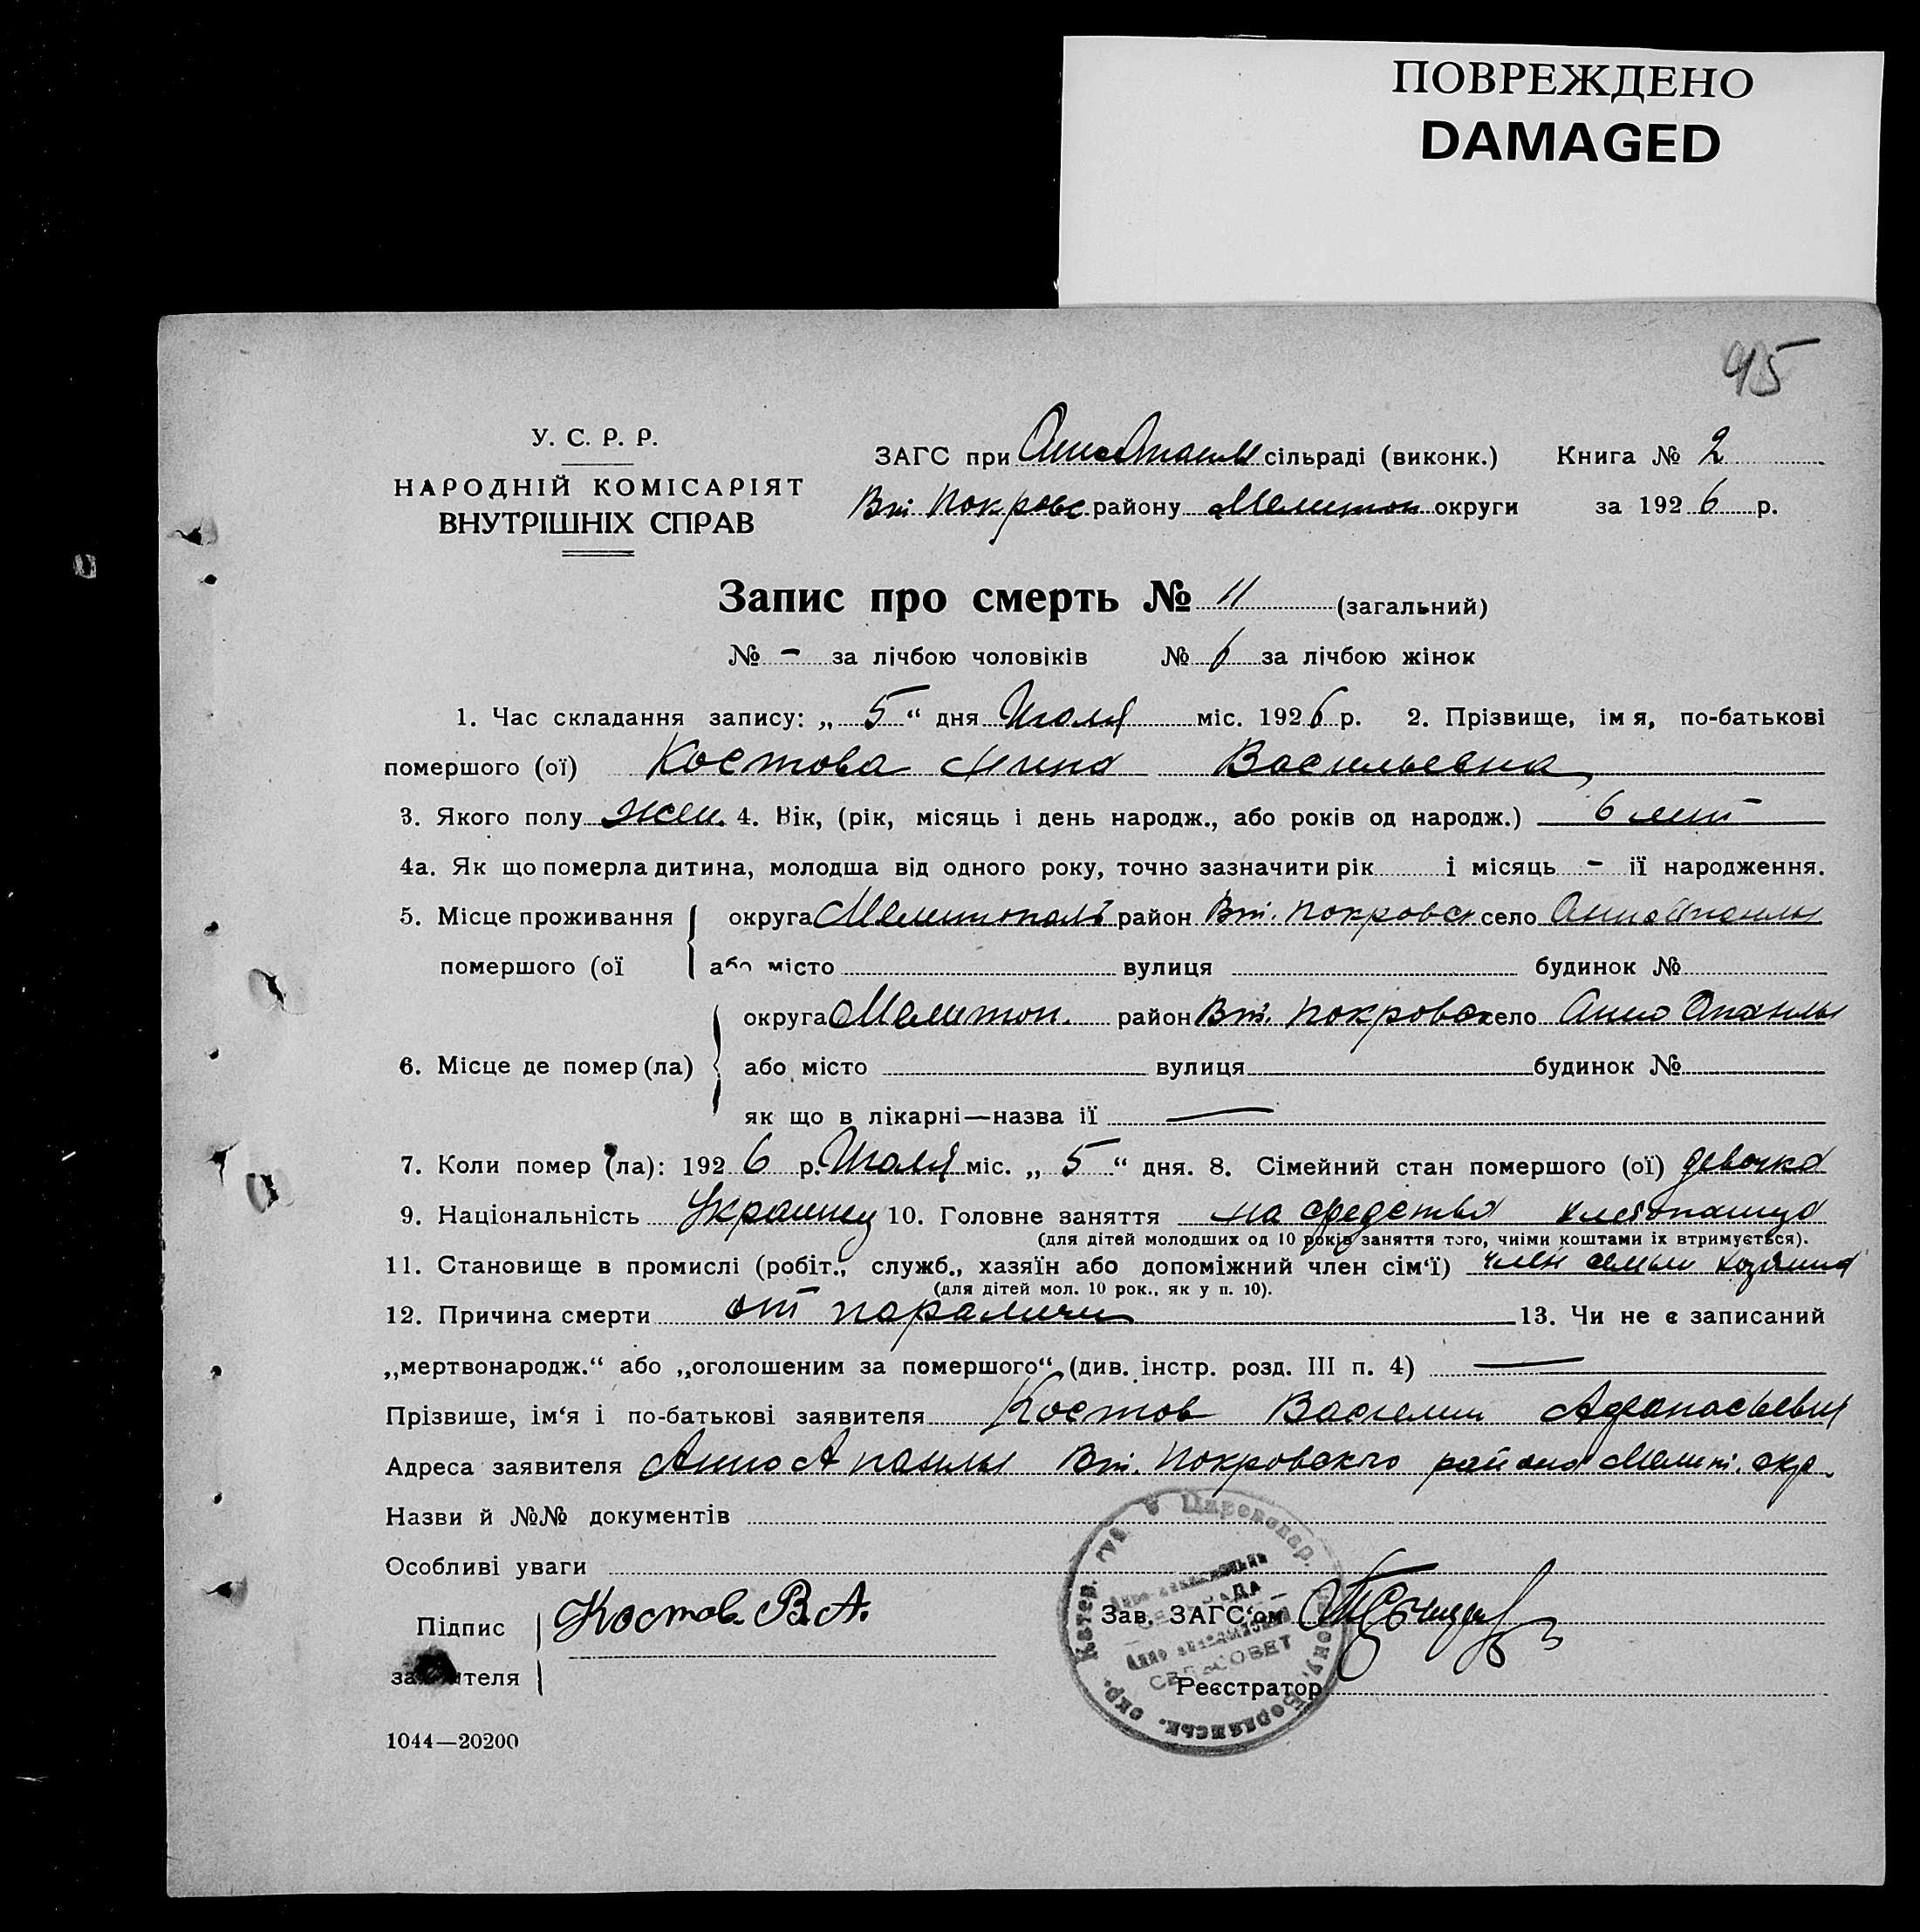 ПОВРЕЖДЕНО
DAMAGED
95
У. С. Р. Р.
НАРОДНІЙ КОМІСАРІЯТ
ВНУТРІШНІХ СПРАВ
ЗАГС при сільраді (виконк.) Книга № 2
Вт. Покровс району Мелитоп округи за 1926 р.
Запис про смерть № 11 (загальний)
№ - за лічбою чоловіків № 6 за лічбою жінок
1. Час складання запису: „5“ дня Июля міс. 1926 р. 2. Прізвище, імя, по-батькові
помершого (ої) Костова Анна Васильевна
3. Якого полу жен. 4. Вік, (рік, місяць і день народж., або років од народж.) 6 лет
4а. Як що померла дитина, молодша від одного року, точно зазначити рік і місяць - ії народження.
5. Місце проживання округа Мелитополь район Вт. Покровск село Анно Опанлы
помершого (ої або місто вулиця будинок №
округа Мелитоп. район Вт. Покровск село Анно Опанлы
6. Місце де помер (ла) або місто вулиця будинок №
як що в лікарні—назва ії —
7. Коли помер (ла): 1926 р. Июля міс. „5“ дня. 8. Сімейний стан помершого (ої) девочка
9. Національність Украинец 10. Головне заняття на средства хлебопашца
(для дітей молодших од 10 років заняття того, чиїми коштами їх втримується).
11. Становище в промислі (робіт., служб., хазяїн або допоміжний член сім‘ї) член семьи хозяина
(для дітей мол. 10 рок., як у п. 10).
12. Причина смерти от параличи 13. Чи не є записаний
„мертвонародж.“ або „оголошеним за помершого“ (див. інстр. розд. III п. 4) —
Прізвише, ім‘я і по-батькові заявителя Костов Василий Афанасьевич
Адреса заявителя Анно Апанлы Вт. Покровского района Мелит. окр.
Назви й №№ документів
Особливі уваги
Підпис Костов В. А. Зав. ЗАГС‘ом
заявителя Реєстратор
Катер. губ.
СЕЛЬСОВЕТ
1044—20200